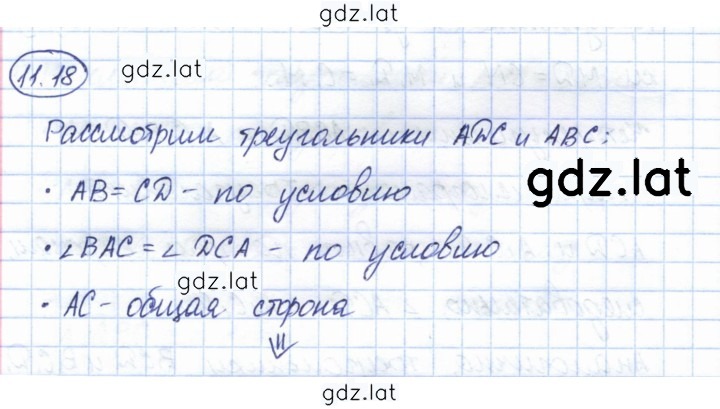 gdz.lat
11.18
gdz.lat
Рассмотрим треугольники ADC и ABC:
gdz.lat
• AB = CD - по условию
• ∠BAC = ∠DCA - по условию
gdz.lat
• AC - общая сторона
⇓
gdz.lat